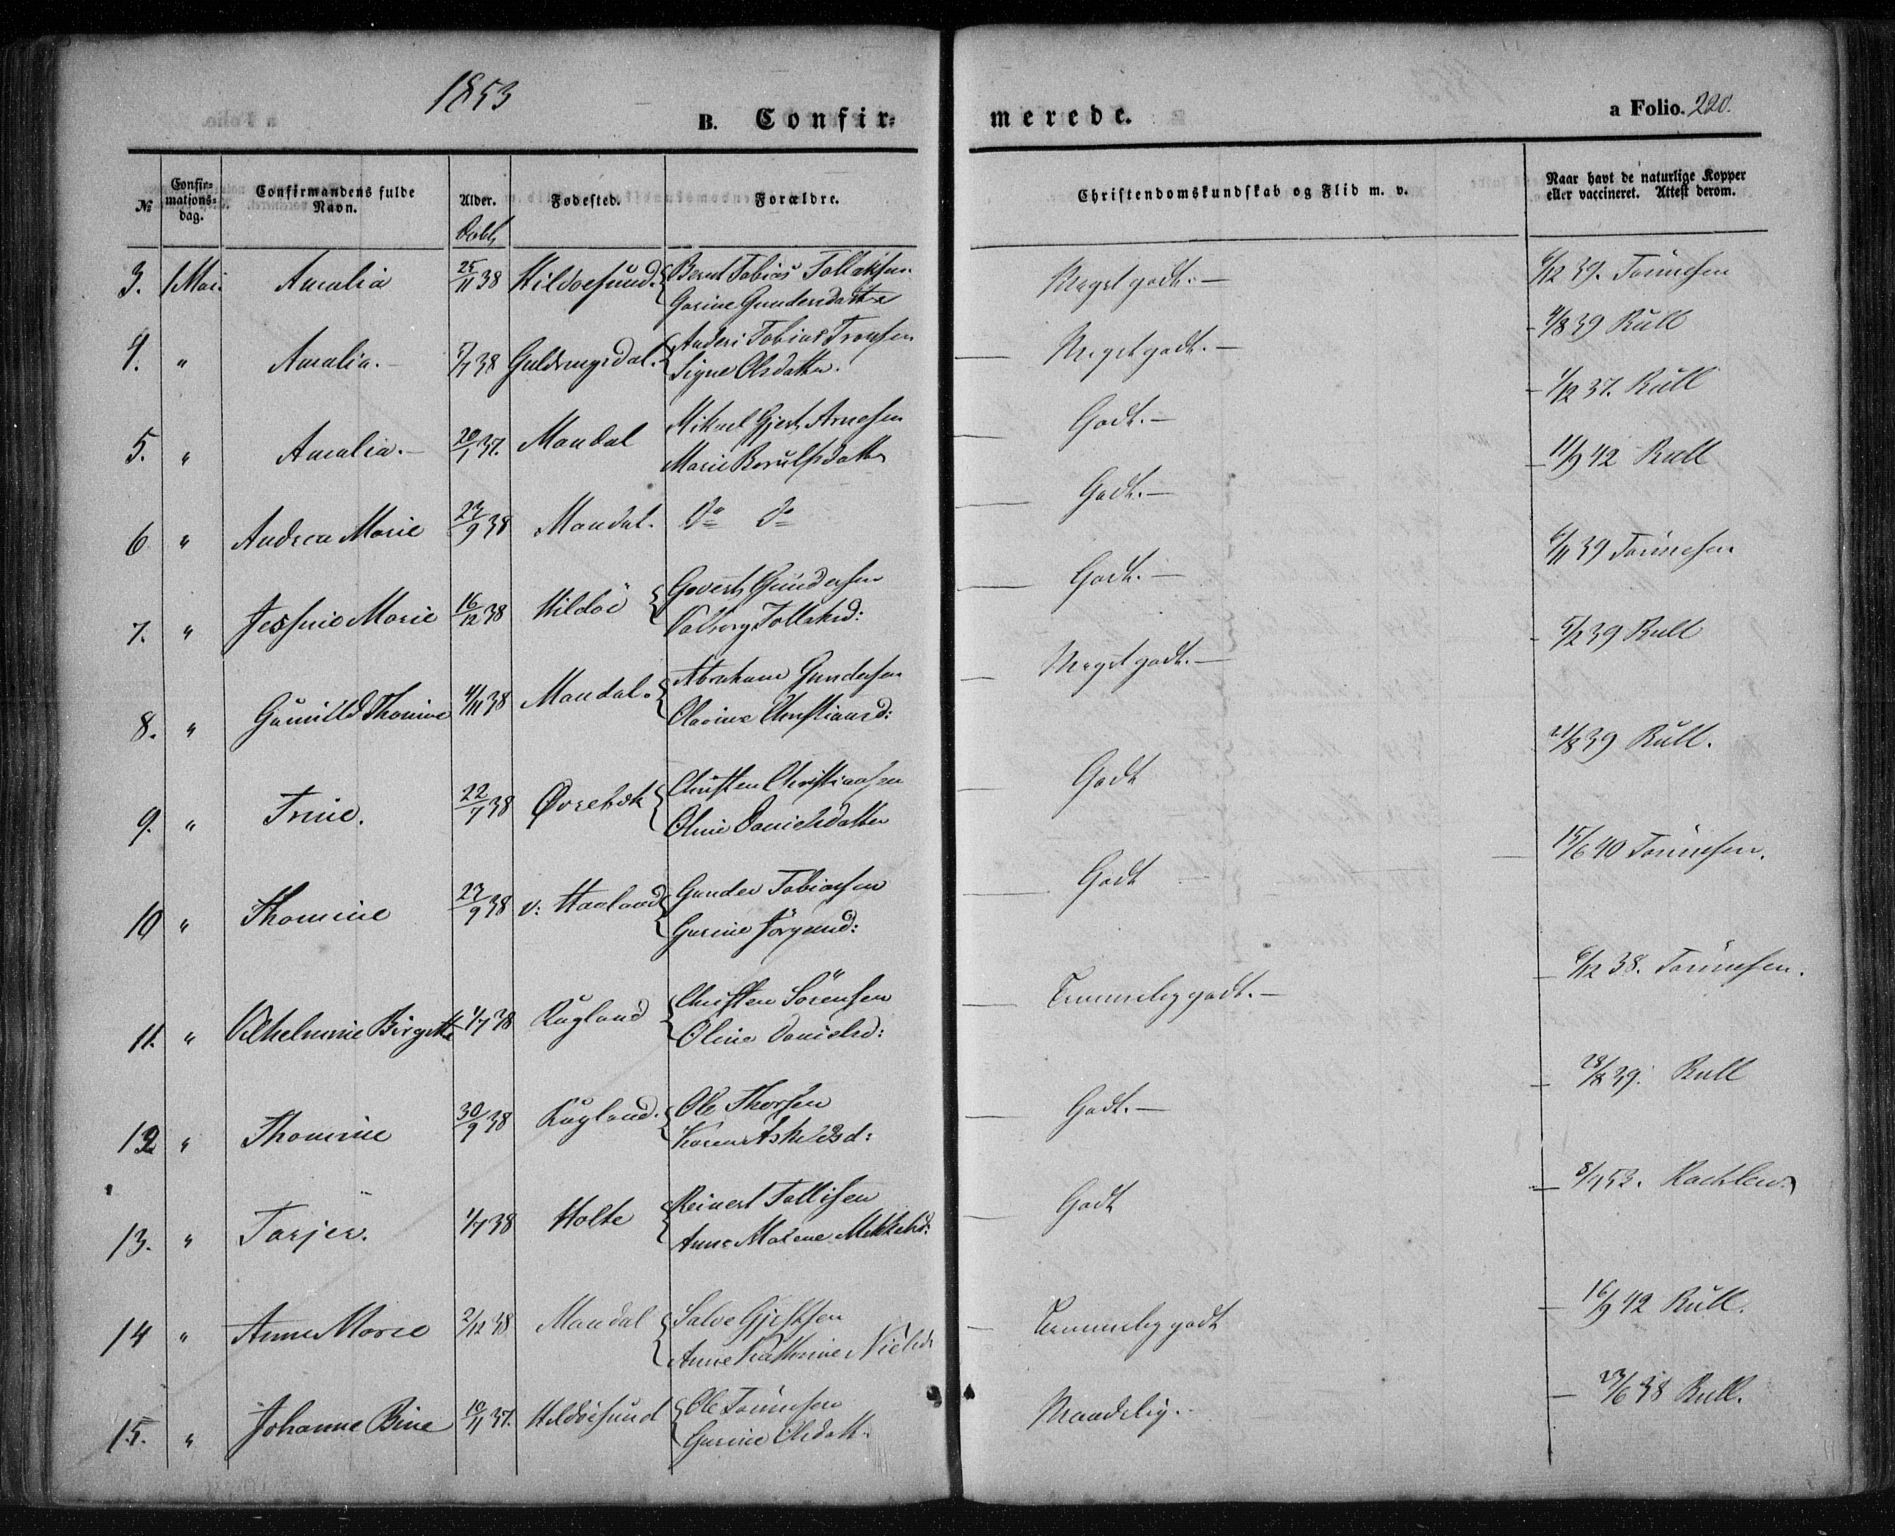 1853
B. Confirmerede.
a Folio. 220.
№ Confirmationsdag. Confirmandens fulde Navn. Alder. Fødested. Forældre. Christendomskundskab og Flid m. v. Naar havt de naturlige Kopper eller vaccineret. Attest derom.
3. 1 Mai. Amalia 25/11 38 Hildøesund. Bernt Tobias Tollaksen Meget godt. — 6/12 39. Tönnesen
Gurine Gundersdatter
4. " Amalia. 38 Anders Tobias Meget godt. — 39 Bull
Signe Olsdatter.
5. " Amalia. — 20/1 37. Mandal Mikael Gjert Arnesen Godt. — 1/12 37. Bull
Marie Berulfsdatter
6 " Andrea Marie 27/9 38 Mandal. do do Godt. — 11/9 42 Bull
7. " Jessine Marie 16/12 38 Hildöe Govert Gundersen Godt. — 6/11 39 Tönnesen
Valborg Tollaksd:
8. " Gunild Thomine 4/11 38 Mandal. Abraham Gundersen Meget godt. — 5/2 39 Bull
Olavine Christiansd:
9. " Trine. 22/7 38 Øvrebøk Christen Christiansen Godt 21/8 39 Bull.
Oline Danielsdatter
10 " Thomine 27/9 38 v: Haaland Gunder Tobiassen Godt 15/6 40 Tönnesen.
Gurine Jörgensd:
11. " Vilhelmine Birgitte 1/7 38 Rügland Christen Sörensen Temmelig godt. — 6/12 38. Tönnesen.
Oline Danielsd:
12 " Thomine 30/9 38 Rügland. Ole Thorsen Godt. — 28/8 39. Bull
Karen Askildsd:
13. " Tarjer. 1/7 38 Holte Reinert Tallisen Godt 53.
Anne Malene Mikkelsd:
14 " Anne Marie 2/12 38 Mandal Salve Gjertsen Temmelig godt 16/9 42 Bull.
Anne Kathrine Nielsd
15. " Johanne Bine 10/11 37. Hildöesund Ole Tönnesen Maadelig. 27/6 38 Bull.
Gurine Olsdatt.